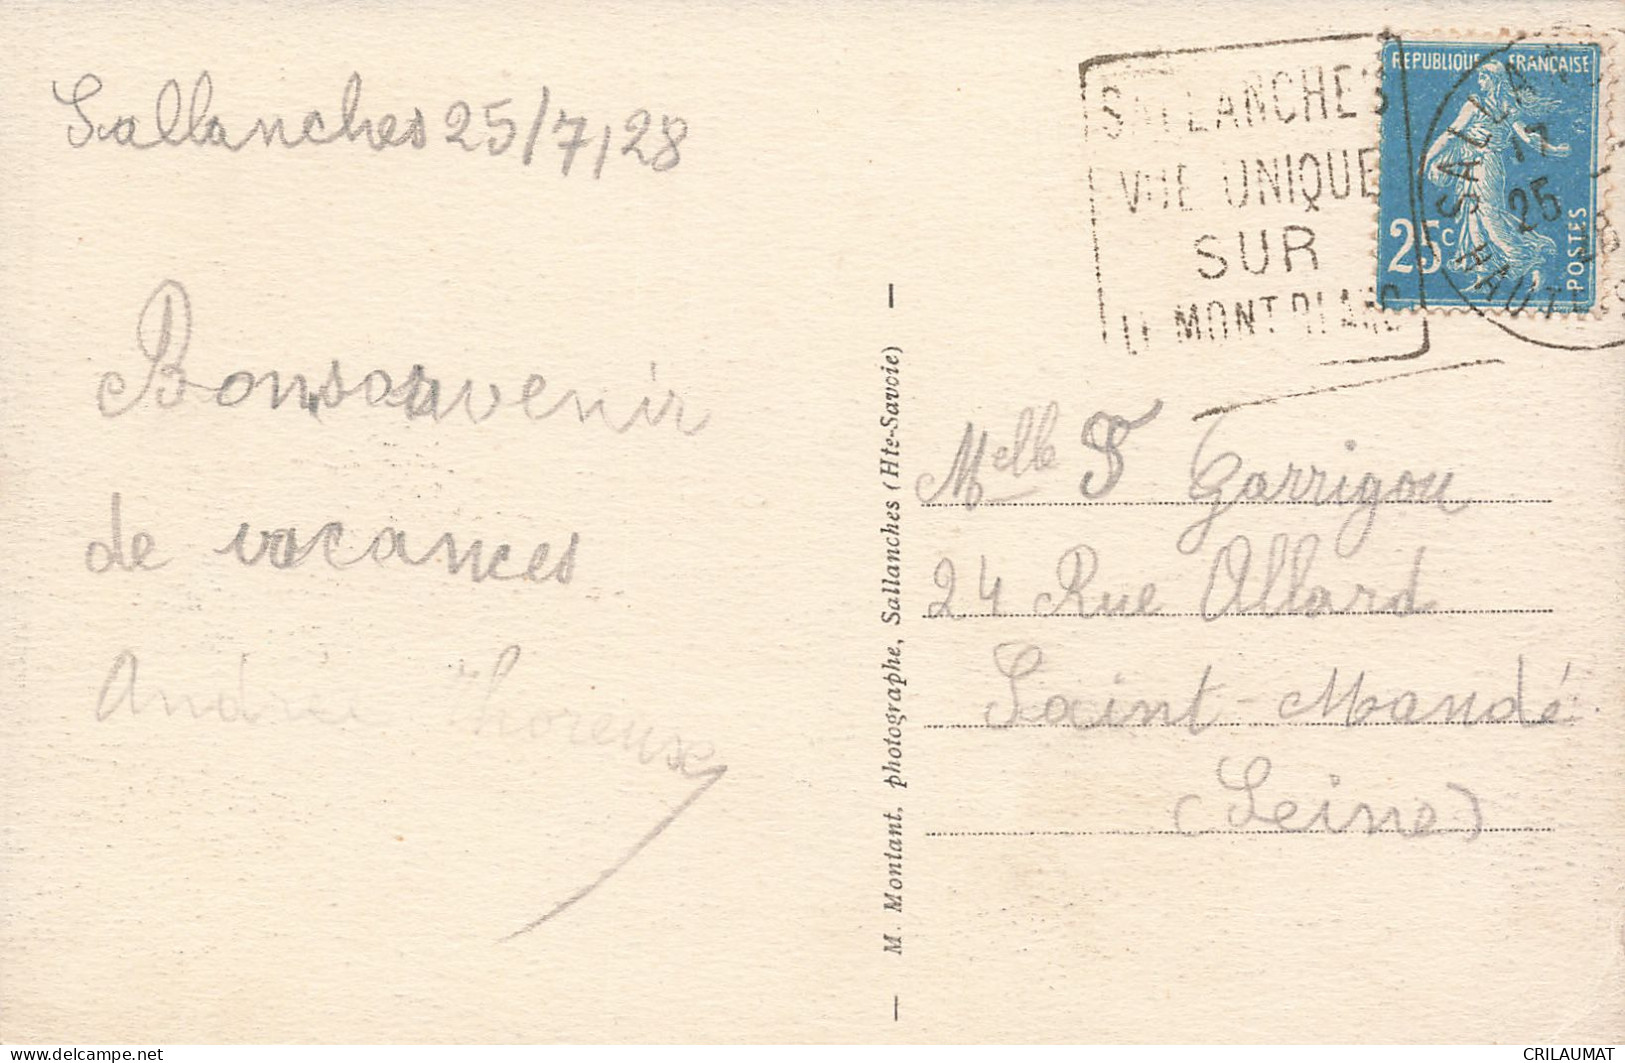 Sallanches 25/7/28
Bonsouvenir
de vacances
André Thoreux
— M. Montant, photographe, Sallanches (Hte-Savoie) —
SALLANCHES
VUE UNIQUE
SUR
LE MONT BLANC
REPUBLIQUE FRANÇAISE
25c
POSTES
SALLANCHES
17
25
28
Melle S Garrigou
24 Rue Allard
Saint-Mandé
(Seine)
CRILAUMAT